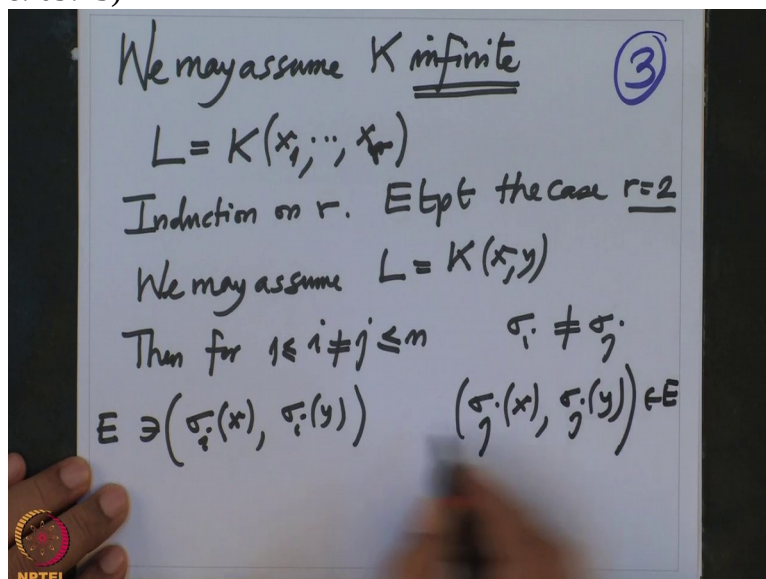 We may assume K infinite
3
L = K(x₁, ..., xᵣ)
Induction on r. Etpt the case r=2
We may assume L = K(x,y)
Then for 1 ≤ i ≠ j ≤ n σᵢ ≠ σⱼ
E ∋ (σᵢ(x), σᵢ(y)) (σⱼ(x), σⱼ(y)) ∈ E
NPTEL